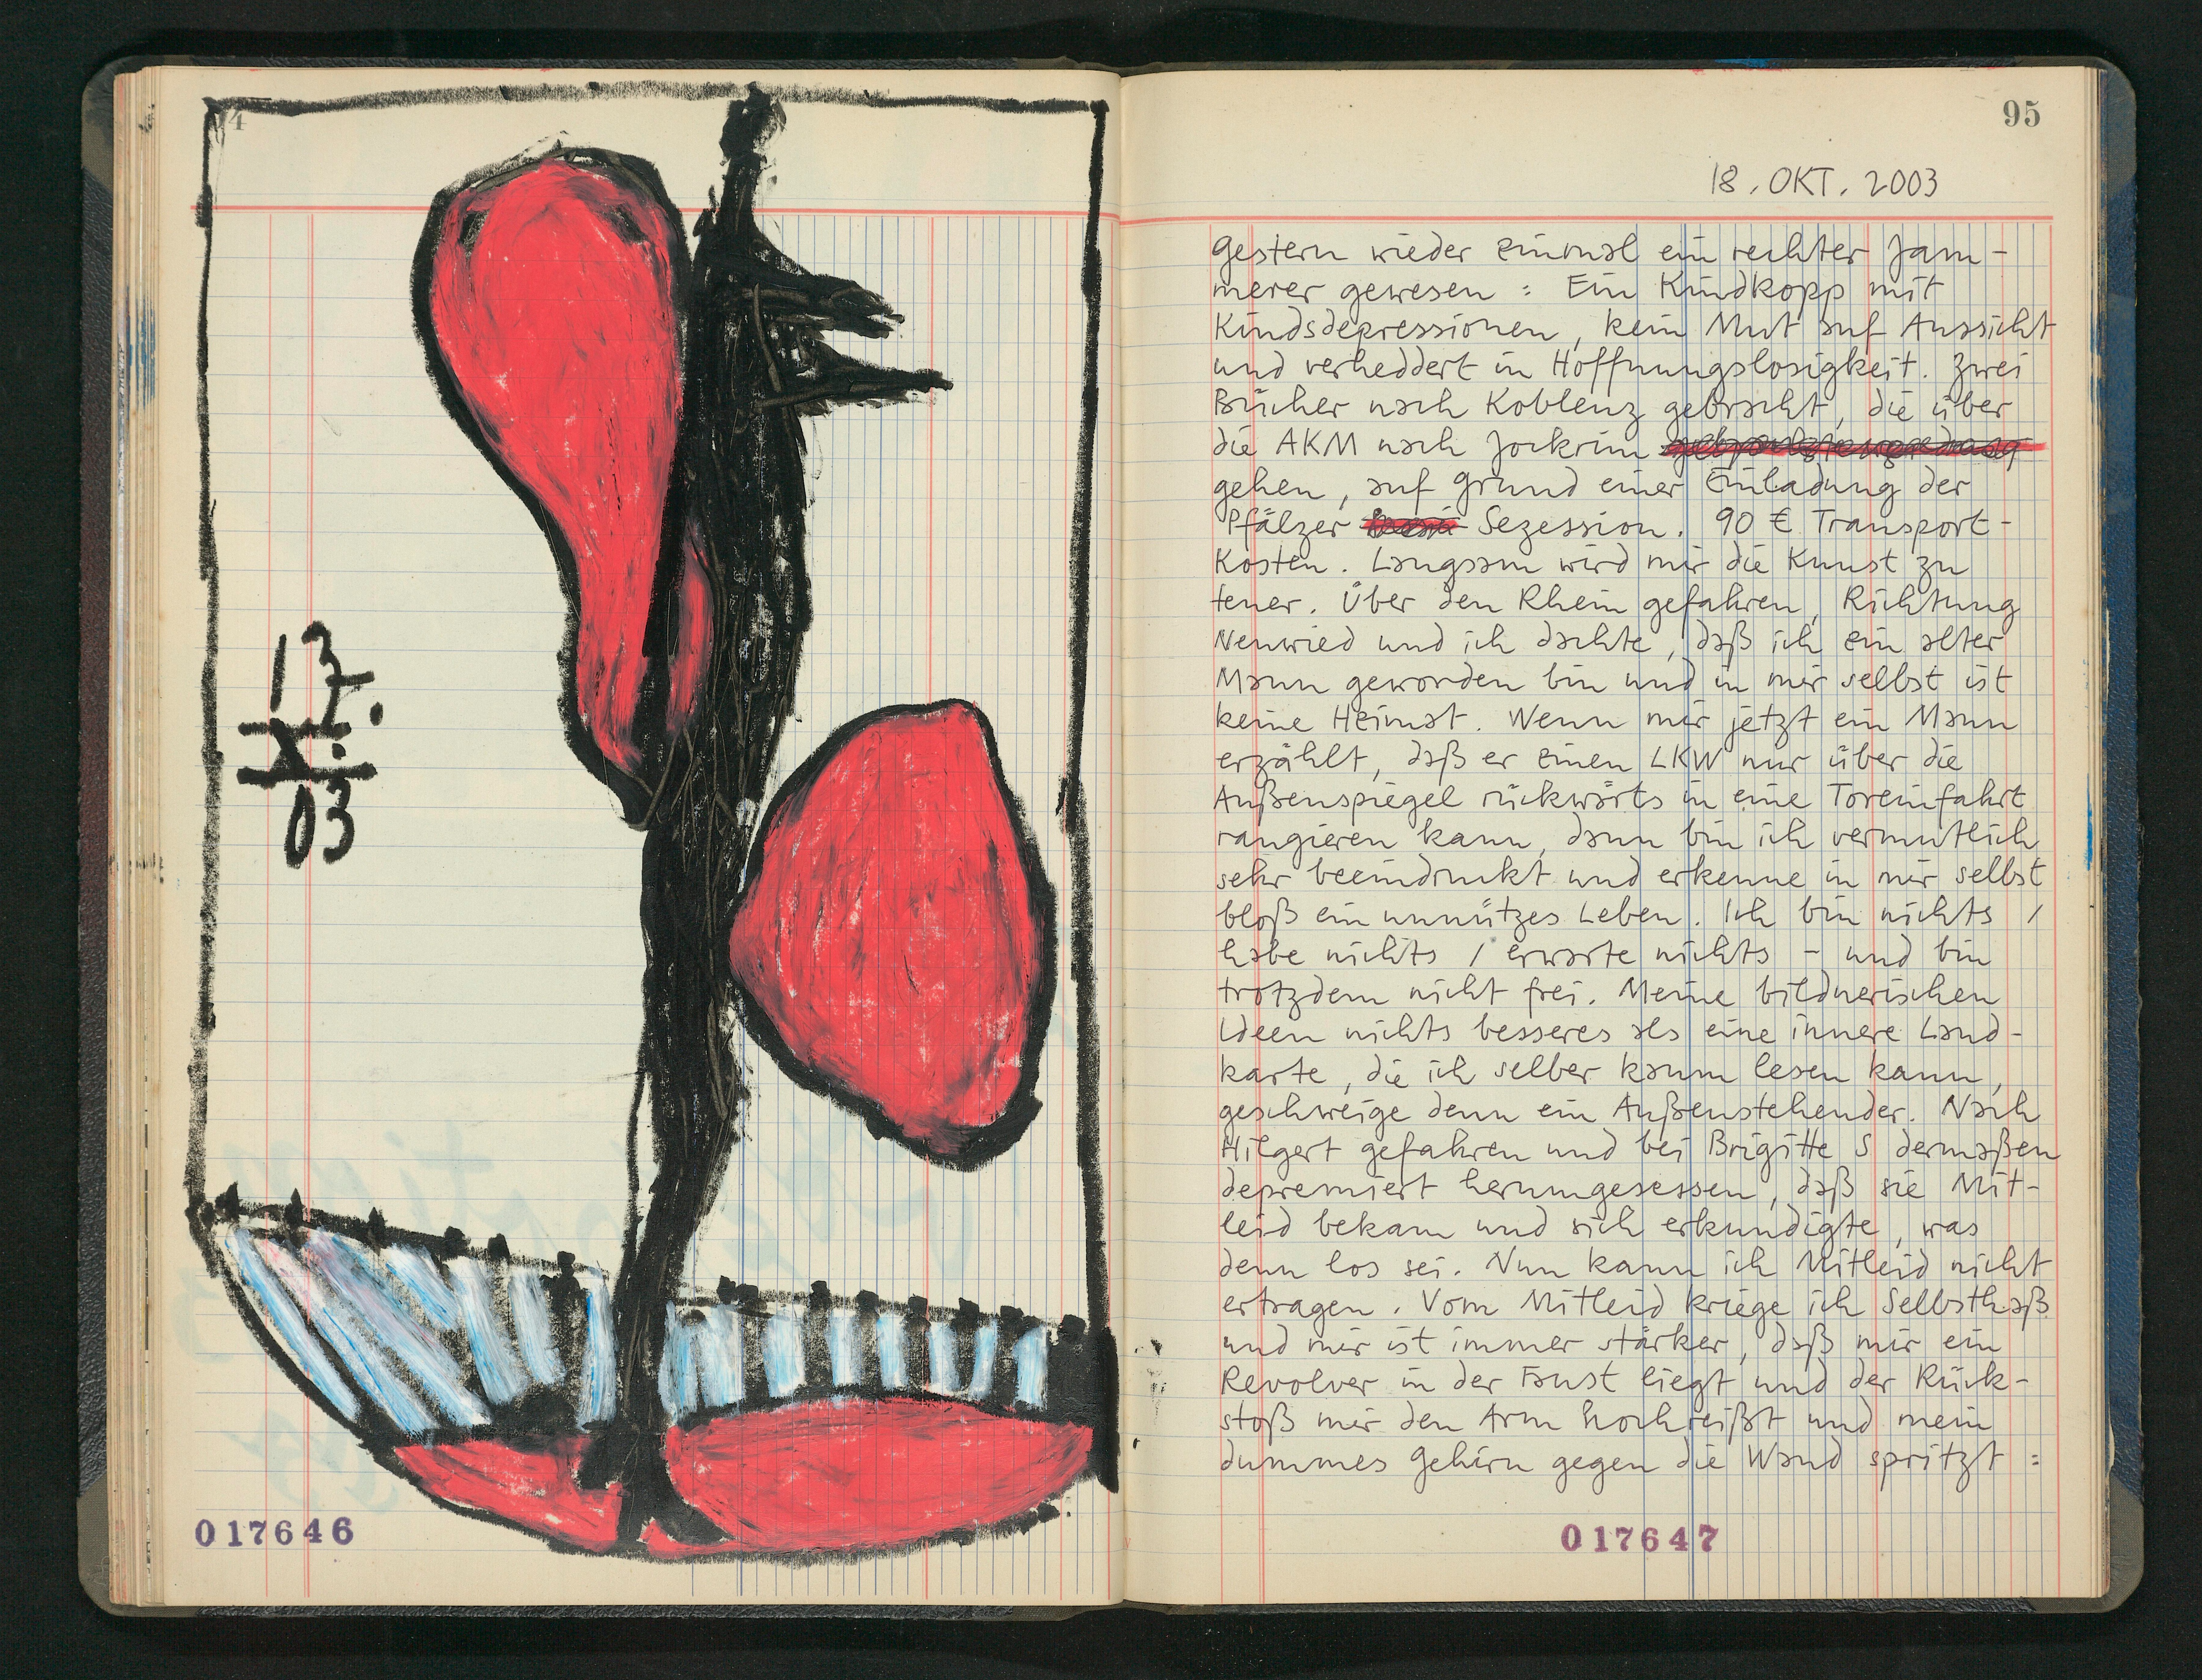 94
17.
X.
03
017646
95
18. OKT. 2003
Gestern wieder einmal ein rechter Jam-
merer gewesen : Ein Kindkopp mit
Kindsdepressionen, kein Mut auf Aussicht
und verheddert in Hoffnungslosigkeit. Zwei
Bücher nach Koblenz gebracht, die über
die AKM nach Jockrim
gehen, auf Grund einer Einladung der
Pfälzer Sezession. 90 € Transport-
Kosten. Langsam wird mir die Kunst zu
teuer. Über den Rhein gefahren, Richtung
Neuwied und ich dachte, daß ich ein alter
Mann geworden bin und in mir selbst ist
keine Heimat. Wenn mir jetzt ein Mann
erzählt, daß er einen LKW nur über die
Außenspiegel rückwärts in eine Toreinfahrt
rangieren kann, dann bin ich vermutlich
sehr beeindruckt und erkenne in mir selbst
bloß ein unnützes Leben. Ich bin nichts /
habe nichts / erwarte nichts - und bin
trotzdem nicht frei. Meine bildnerischen
Ideen nichts besseres als eine innere Land-
karte, die ich selber kaum lesen kann,
geschweige denn ein Außenstehender. Nach
Hilgert gefahren und bei Brigitte S dermaßen
depremiert herumgesessen, daß sie Mit-
leid bekam und sich erkundigte, was
denn los sei. Nun kann ich Mitleid nicht
ertragen. Vom Mitleid kriege ich Selbsthaß
und mir ist immer stärker, daß mir ein
Revolver in der Faust liegt und der Rück-
stoß mir den Arm hochreißt und mein
dummes Gehirn gegen die Wand spritzt :
017647